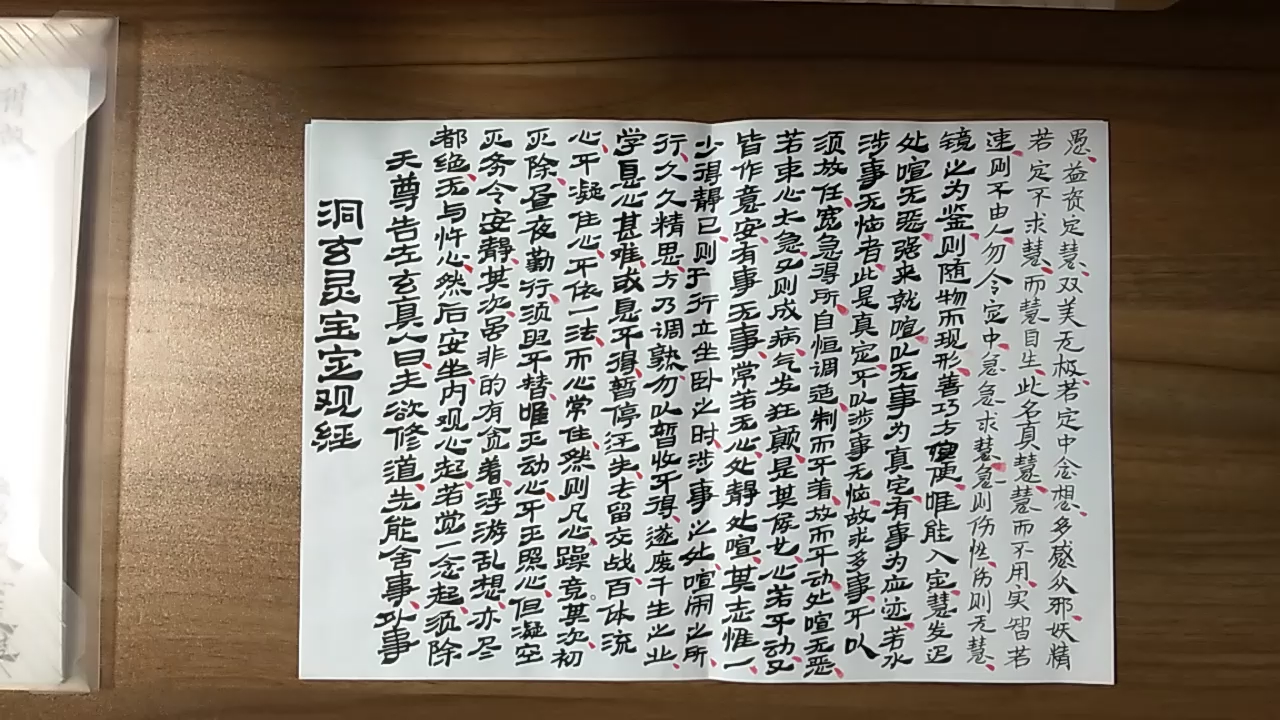 洞玄灵宝定观经
天尊告左玄真人曰、夫欲修道、先能舍事、外事
都绝、无与忤心、然后安坐、内观心起、若觉一念起、须除
灭、务令安静、其次、虽非的有贪着、浮游乱想、亦尽
灭除、昼夜勤行、须臾不替、唯灭动心、不灭照心、但凝空
心、不凝住心、不依一法、而心常住、然则凡心躁竞。其次、初
学息心甚难、或息不得、暂停还失、去留交战、百体流
行、久久精思、方乃调熟、勿以暂收不得、遂废千生之业、
少得静已、则于行立坐卧之时、涉事之处、喧闹之所、
皆作意安、有事无事、常若无心、处静处喧、其志惟一、
若束心太急、又则成病、气发狂颠、是其候也、心若不动、又
须放任、宽急得所、自恒调适、制而不着、放而不动、处喧无恶、
涉事无恼者、此是真定、不以涉事无恼、故求多事、不以
处喧无恶、强来就喧、以无事为真宅、有事为应迹、若水
镜之为鉴、则随物而现形、善巧方便、唯能入定、慧发迟
速、则不由人、勿令定中、急急求慧、急则伤性、伤则无慧、
若定不求慧、而慧自生、此名真慧、慧而不用、实智若
愚、益资定慧、双美无极、若定中念想、多感众邪妖精